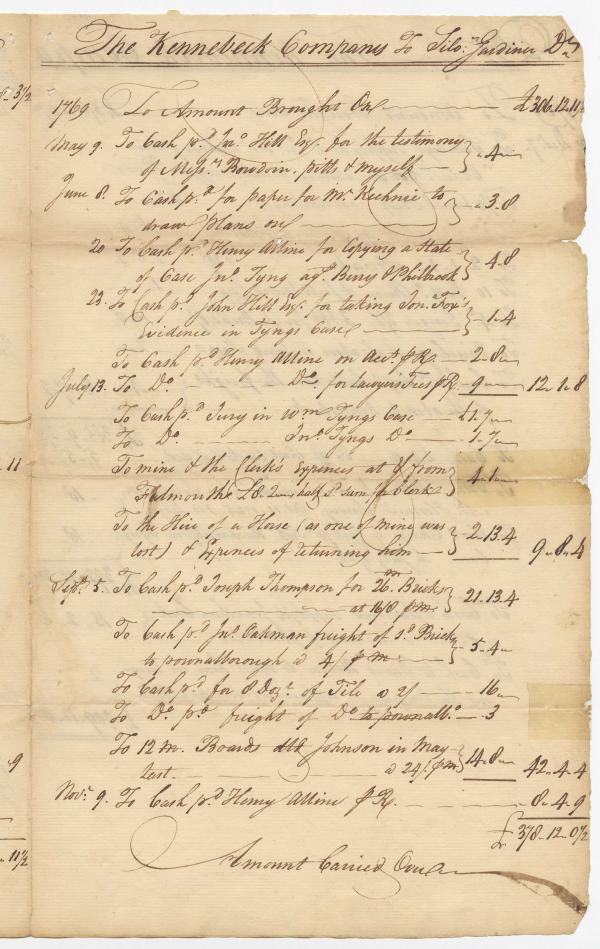 The Kennebeck Company To Silv.r Gardiner Dr
3½
1769 To Amount Brought Ov.r £306.12.11½
May 9. To Cash p.d Jn.o Hill Esq. for the testimony
of Mess.rs Bowdoin, pitts & myself } 4
June 8. To Cash p.d for paper for Mr. Kechnie to
draw plans on } 3.8
20 To Cash p.d Henry Alline for Copying a State
of Case Jn.o Tyng ag.t Berry & Philbrook } 4.8
23. To Cash p.d John Hill Esq. for taking Jon.a Fox's
Evidence in Tyngs Case } 1.4
To Cash p.d Henry Alline on Acc.t p R. 2.8
July 13. To D.o D.o for Lawyer's Fees p R. 9 12.1.8
To Cash p.d Jury in W.m Tyngs Case £1.7
To D.o Jn.o Tyngs D.o 1.7
11
To mine & the Clerk's Expences at & from
Falmouth £8.2 half s.d sum for Clerk } 4.1
To the Hire of a Horse (as one of mine was
lost) & Expences of returning him } 2.13.4 9.8.4
Sept. 5. To Cash p.d Joseph Thompson for 26 m Bricks
at 16/8 p m } 21.13.4
To Cash p.d Jn.o Oakman freight of s.d Brick
to pownalborough a 4/ p m } 5.4
To Cash p.d for 8 Doz.n of Tile a 2/ 16
To D.o p.d freight of D.o to pownalb.o 3
To 12 m. Boards dld Johnson in May
last. a 24/ p m } 14.8 42.4.4
9
Nov.r 9. To Cash p.d Henry Alline p R. 8.4.9
£378.12.0½
11½
Amount Carried Over